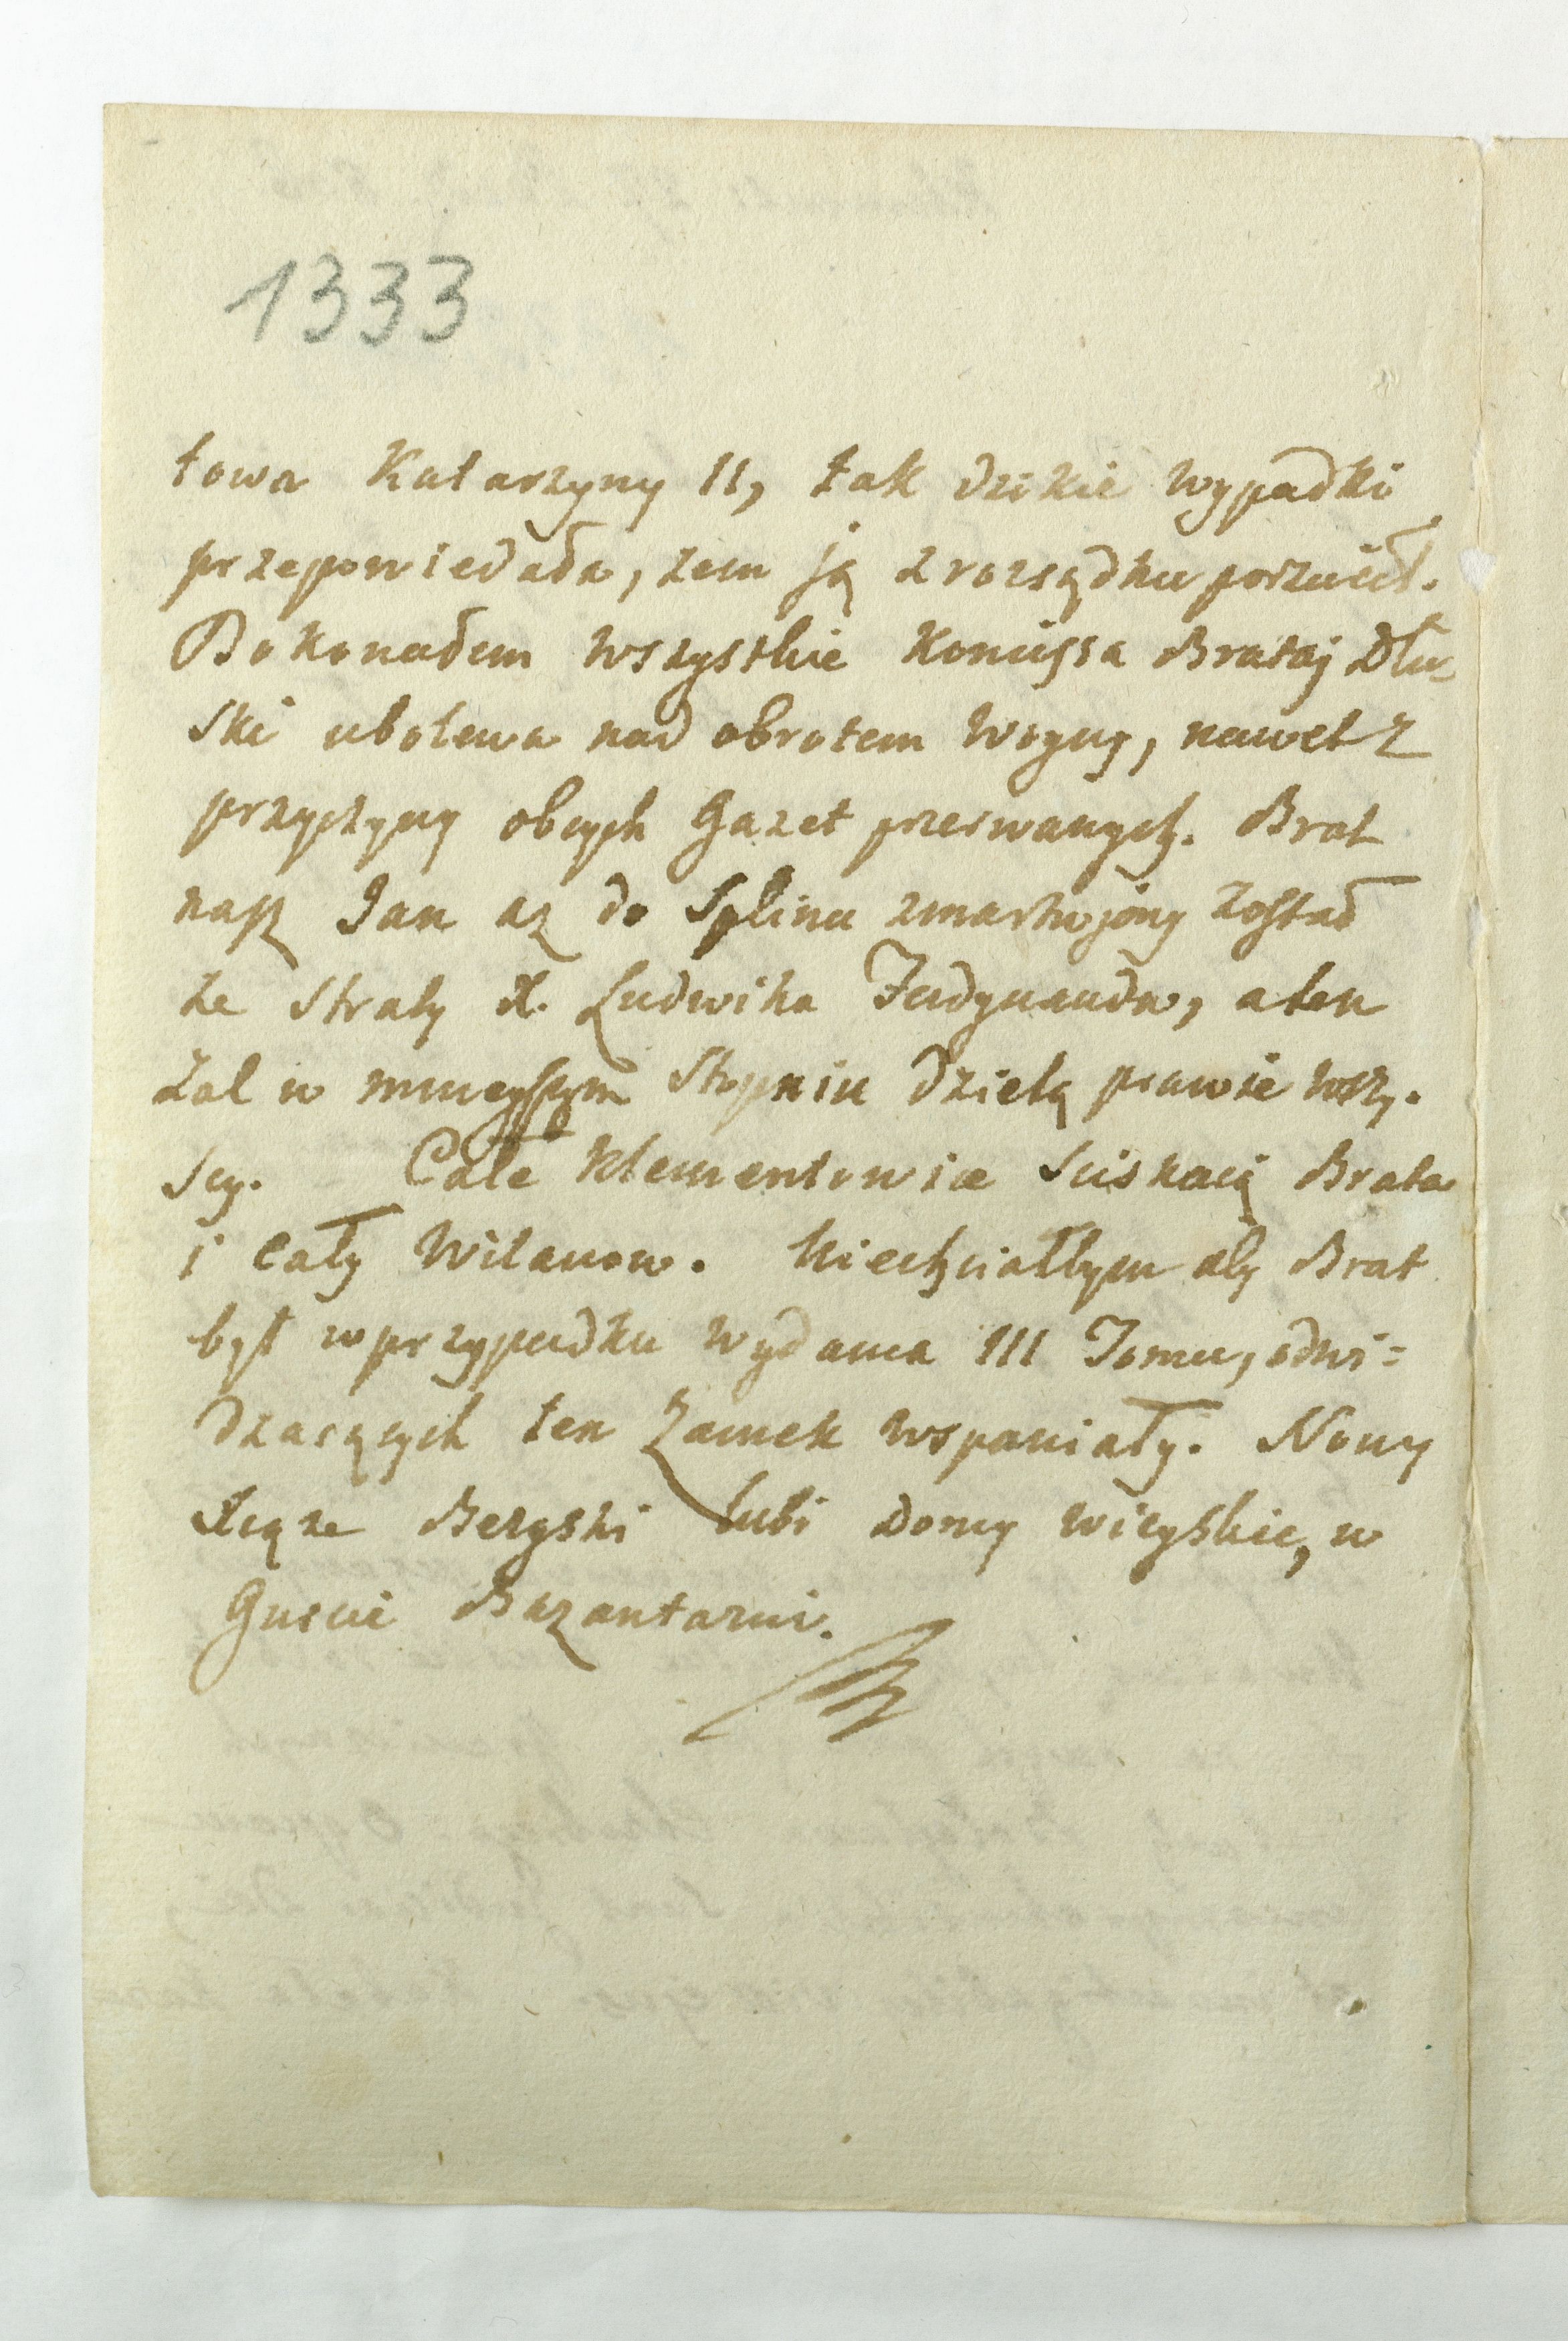 1333
towa Katarzyny II, tak dzikie wypadki
przepowiedała, zem ją z rozsądku porzucił.
Dokonałem wszystkie Bratay Dłu-
ski ubolewa nad obrotem Woyny, nawet z
przyczyny obcych Gazet przerwanych. Brat
nasz Jan az do Splinu zmartwjony został
ze Straty X. Ludwika Ferdynanda, a ten
Zal w mnieyszym Stopniu dzielą prawie wszy.
scy. Całe Klementowice Sciskaią Brata
i cały Wilanow. Niechciałbym aby Brat
był w przypadku wydania III Tomu, odwi=
dzaiących ten Zamek wspaniały. Nowy
Xiąze Bergski lubi Domy wieyskie, w
Guscie Bazantarni.